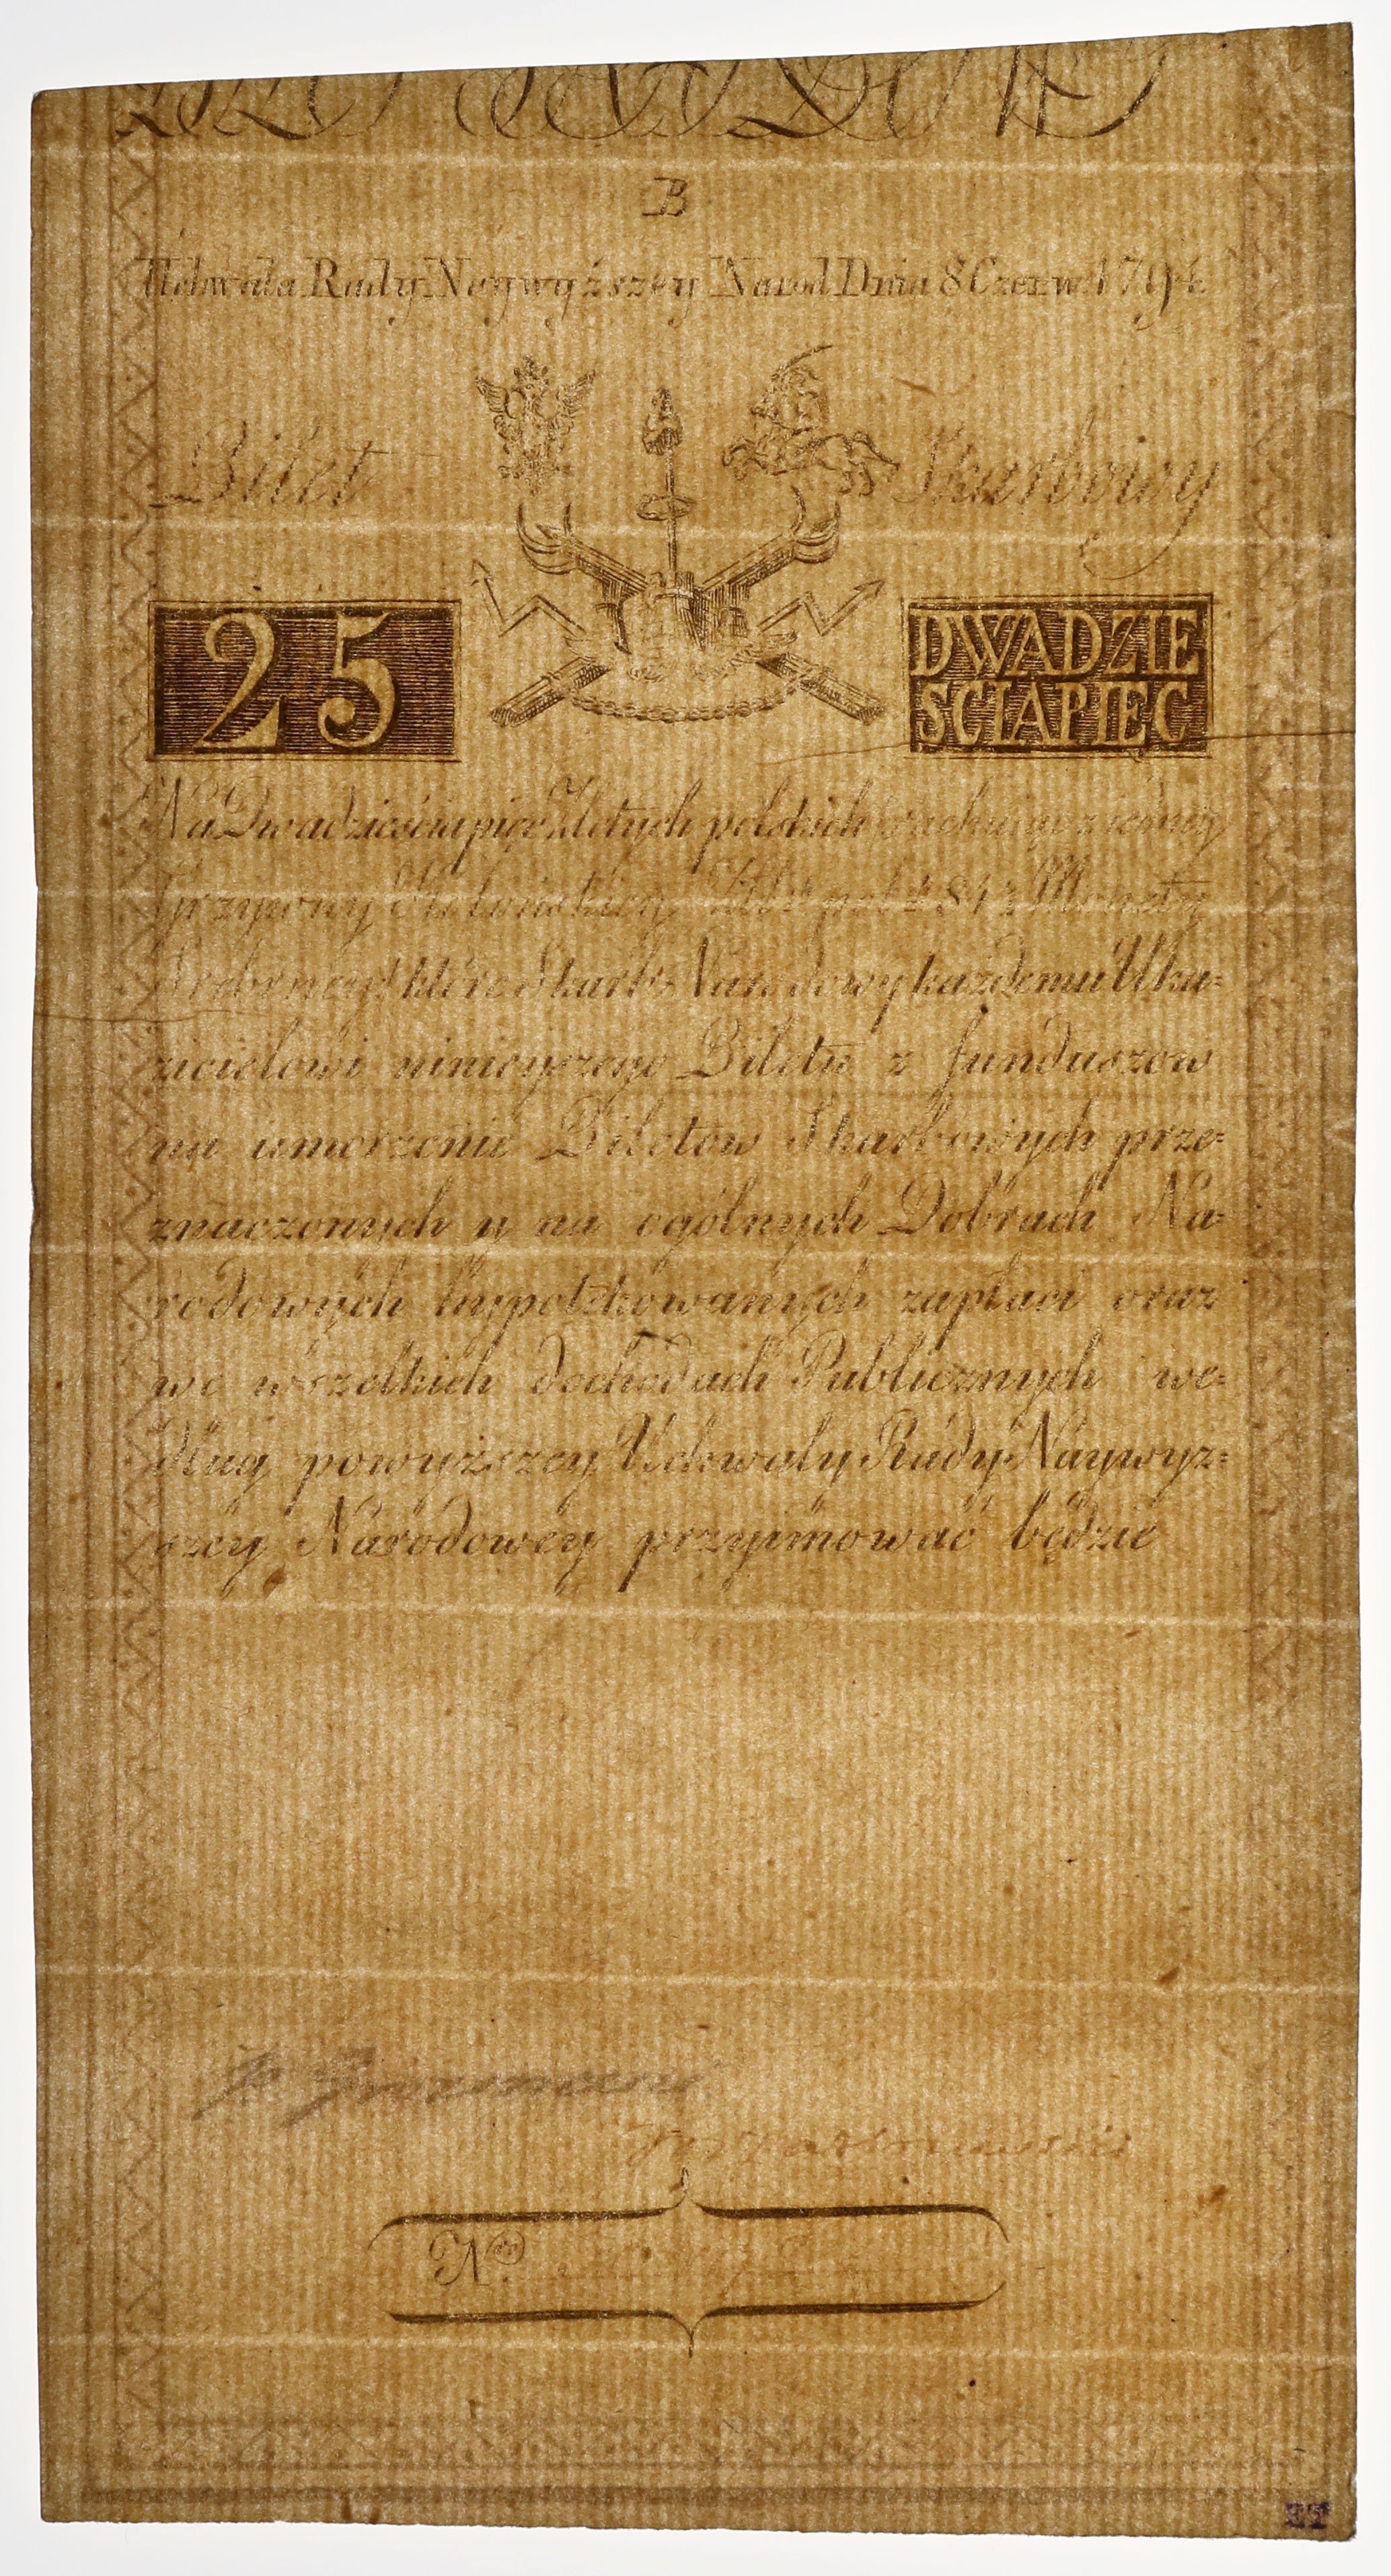 B
Uchwała Rady Naywyższey Narod Dnia 8 Czerw. 1794
Bilet Skarbowy
25
DWADZIE
SCIAPIĘC
Na Dwadzieścia pięć Złotych polskich rachuiąc z iedney
Grzywny Kolońskiey Złł: pol: 84½ Monetą
Srebrney które Skarb Narodowy każdemu Uka=
zicielowi ninieyszego Biletu z funduszow
na umorzenie Biletow Skarbowych prze=
znaczonych y na ogólnych Dobrach Na=
rodowych hypotekowanych zapłaci oraz
we wszelkich dochodach Publicznych we=
dług powyższey Uchwały Rady Naywyz=
szey Narodowey przyimować będzie
Nro
ET